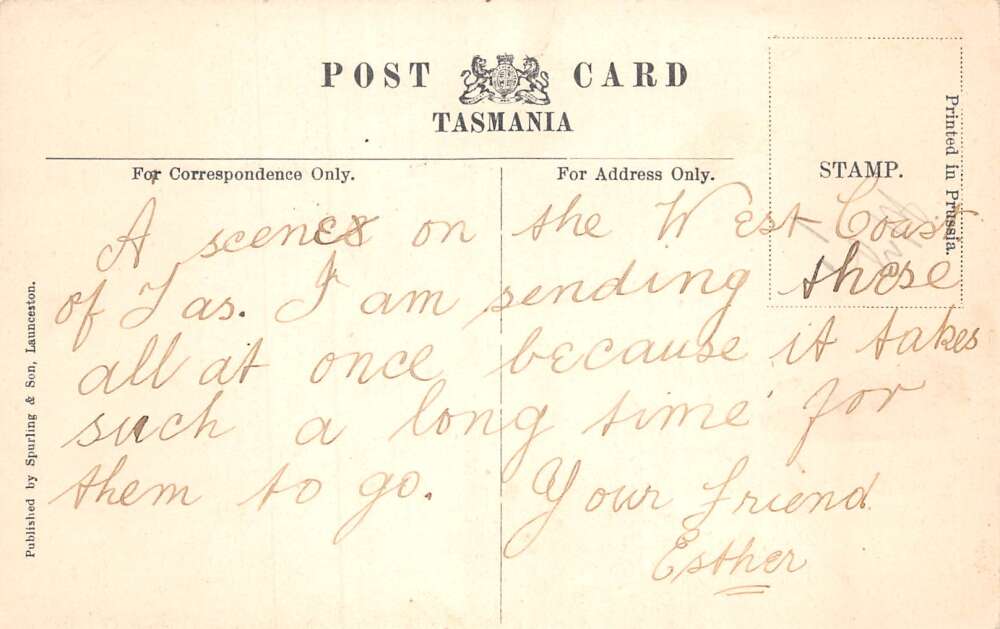 POST CARD
TASMANIA
For Correspondence Only.
For Address Only.
STAMP.
Printed in Prussia.
Published by Spurling & Son, Launceston.
A scenes on the West Coast
of Tas. I am sending these
all at once because it takes
such a long time for
them to go. Your friend
Esther